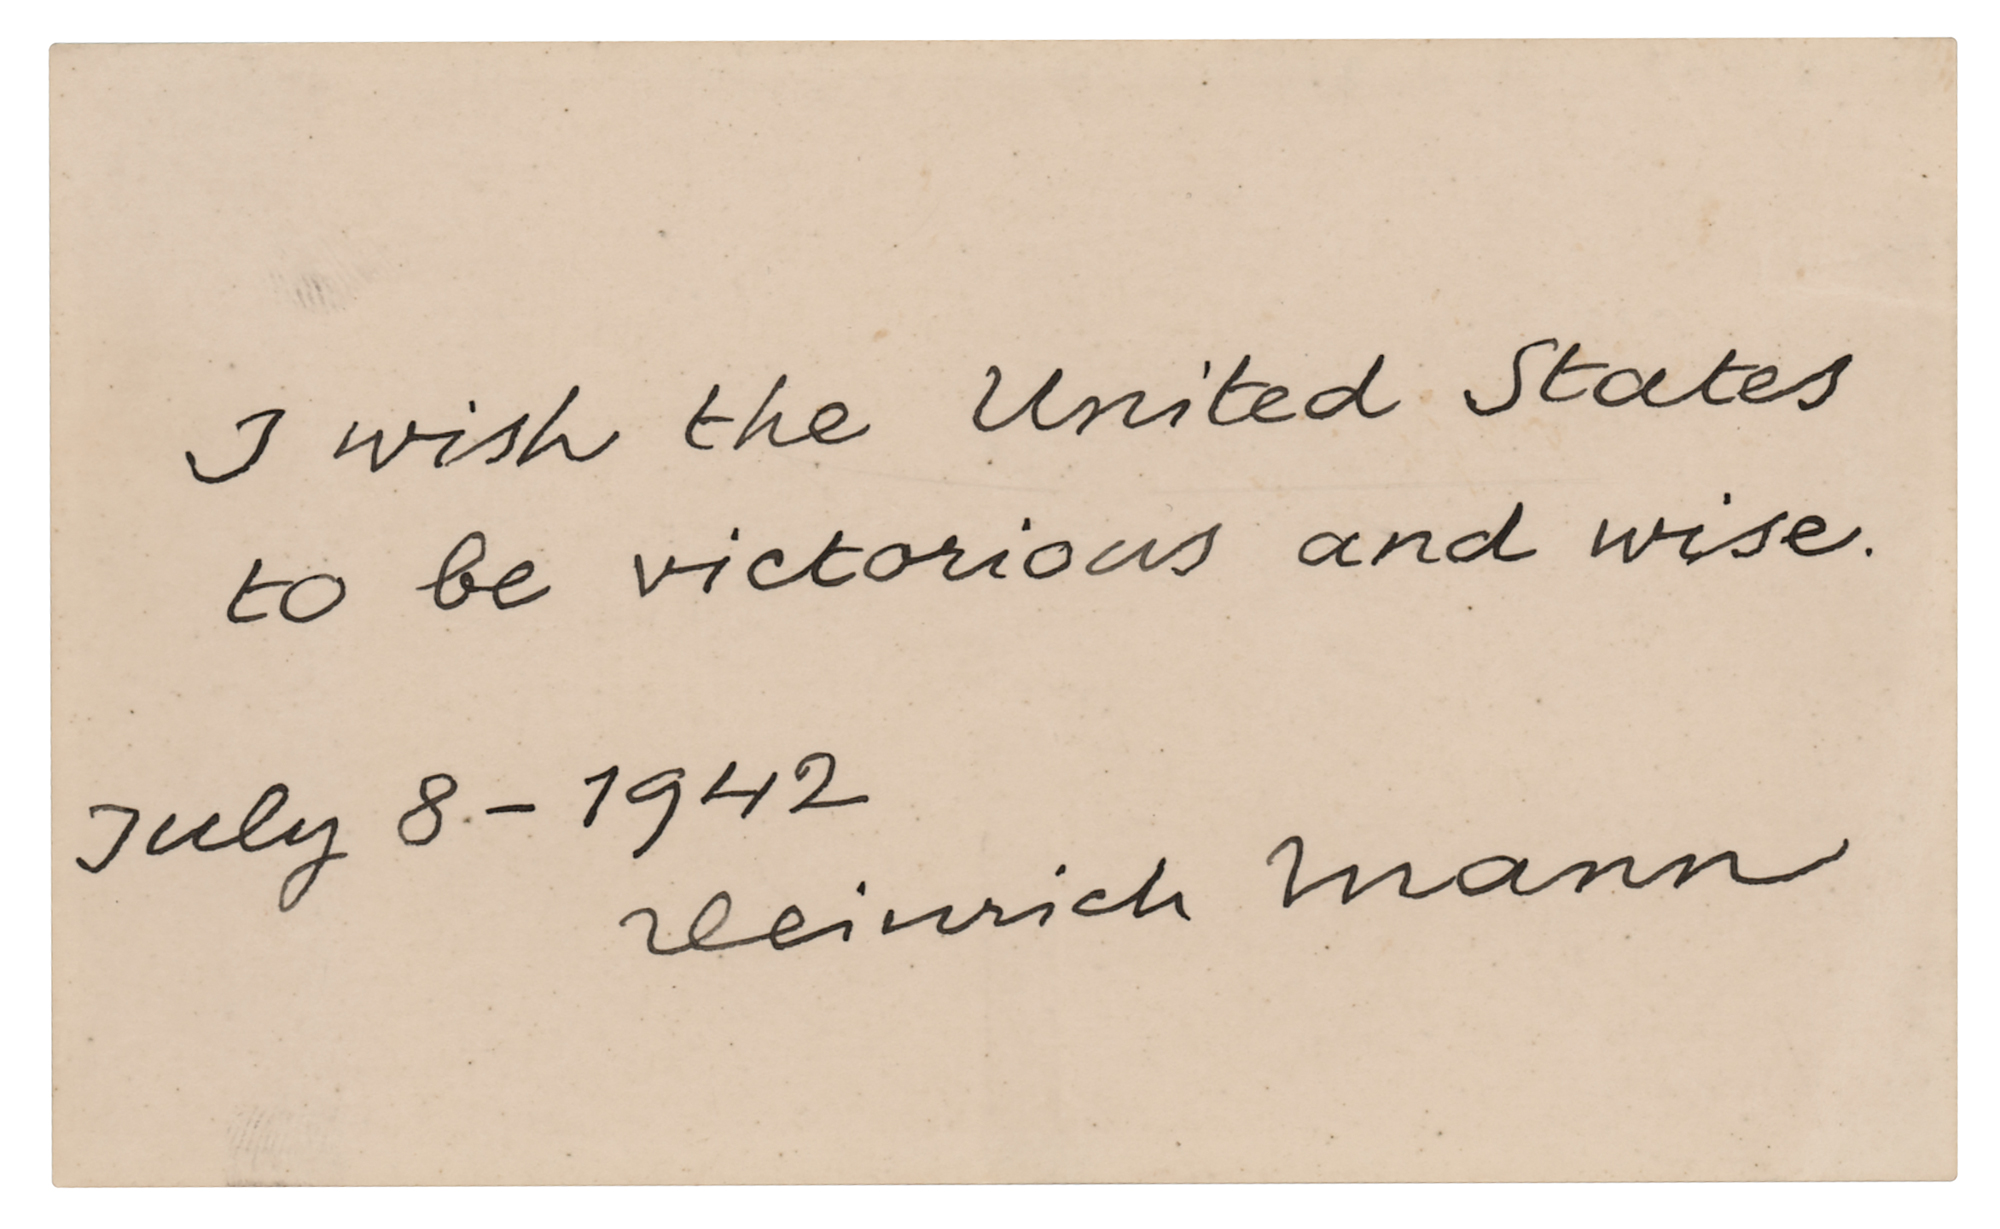 I wish the United States
to be victorious and wise.
July 8 - 1942
Heinrich Mann